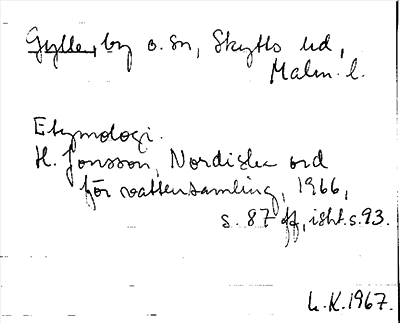 Gylle, by o. sn, Skytts hd,
Malm. l.
Etymologi.
H. Jonsson, Nordiska ord
för vattensamling, 1966,
s. 87 ff, isht. s. 93.
L.K. 1967.